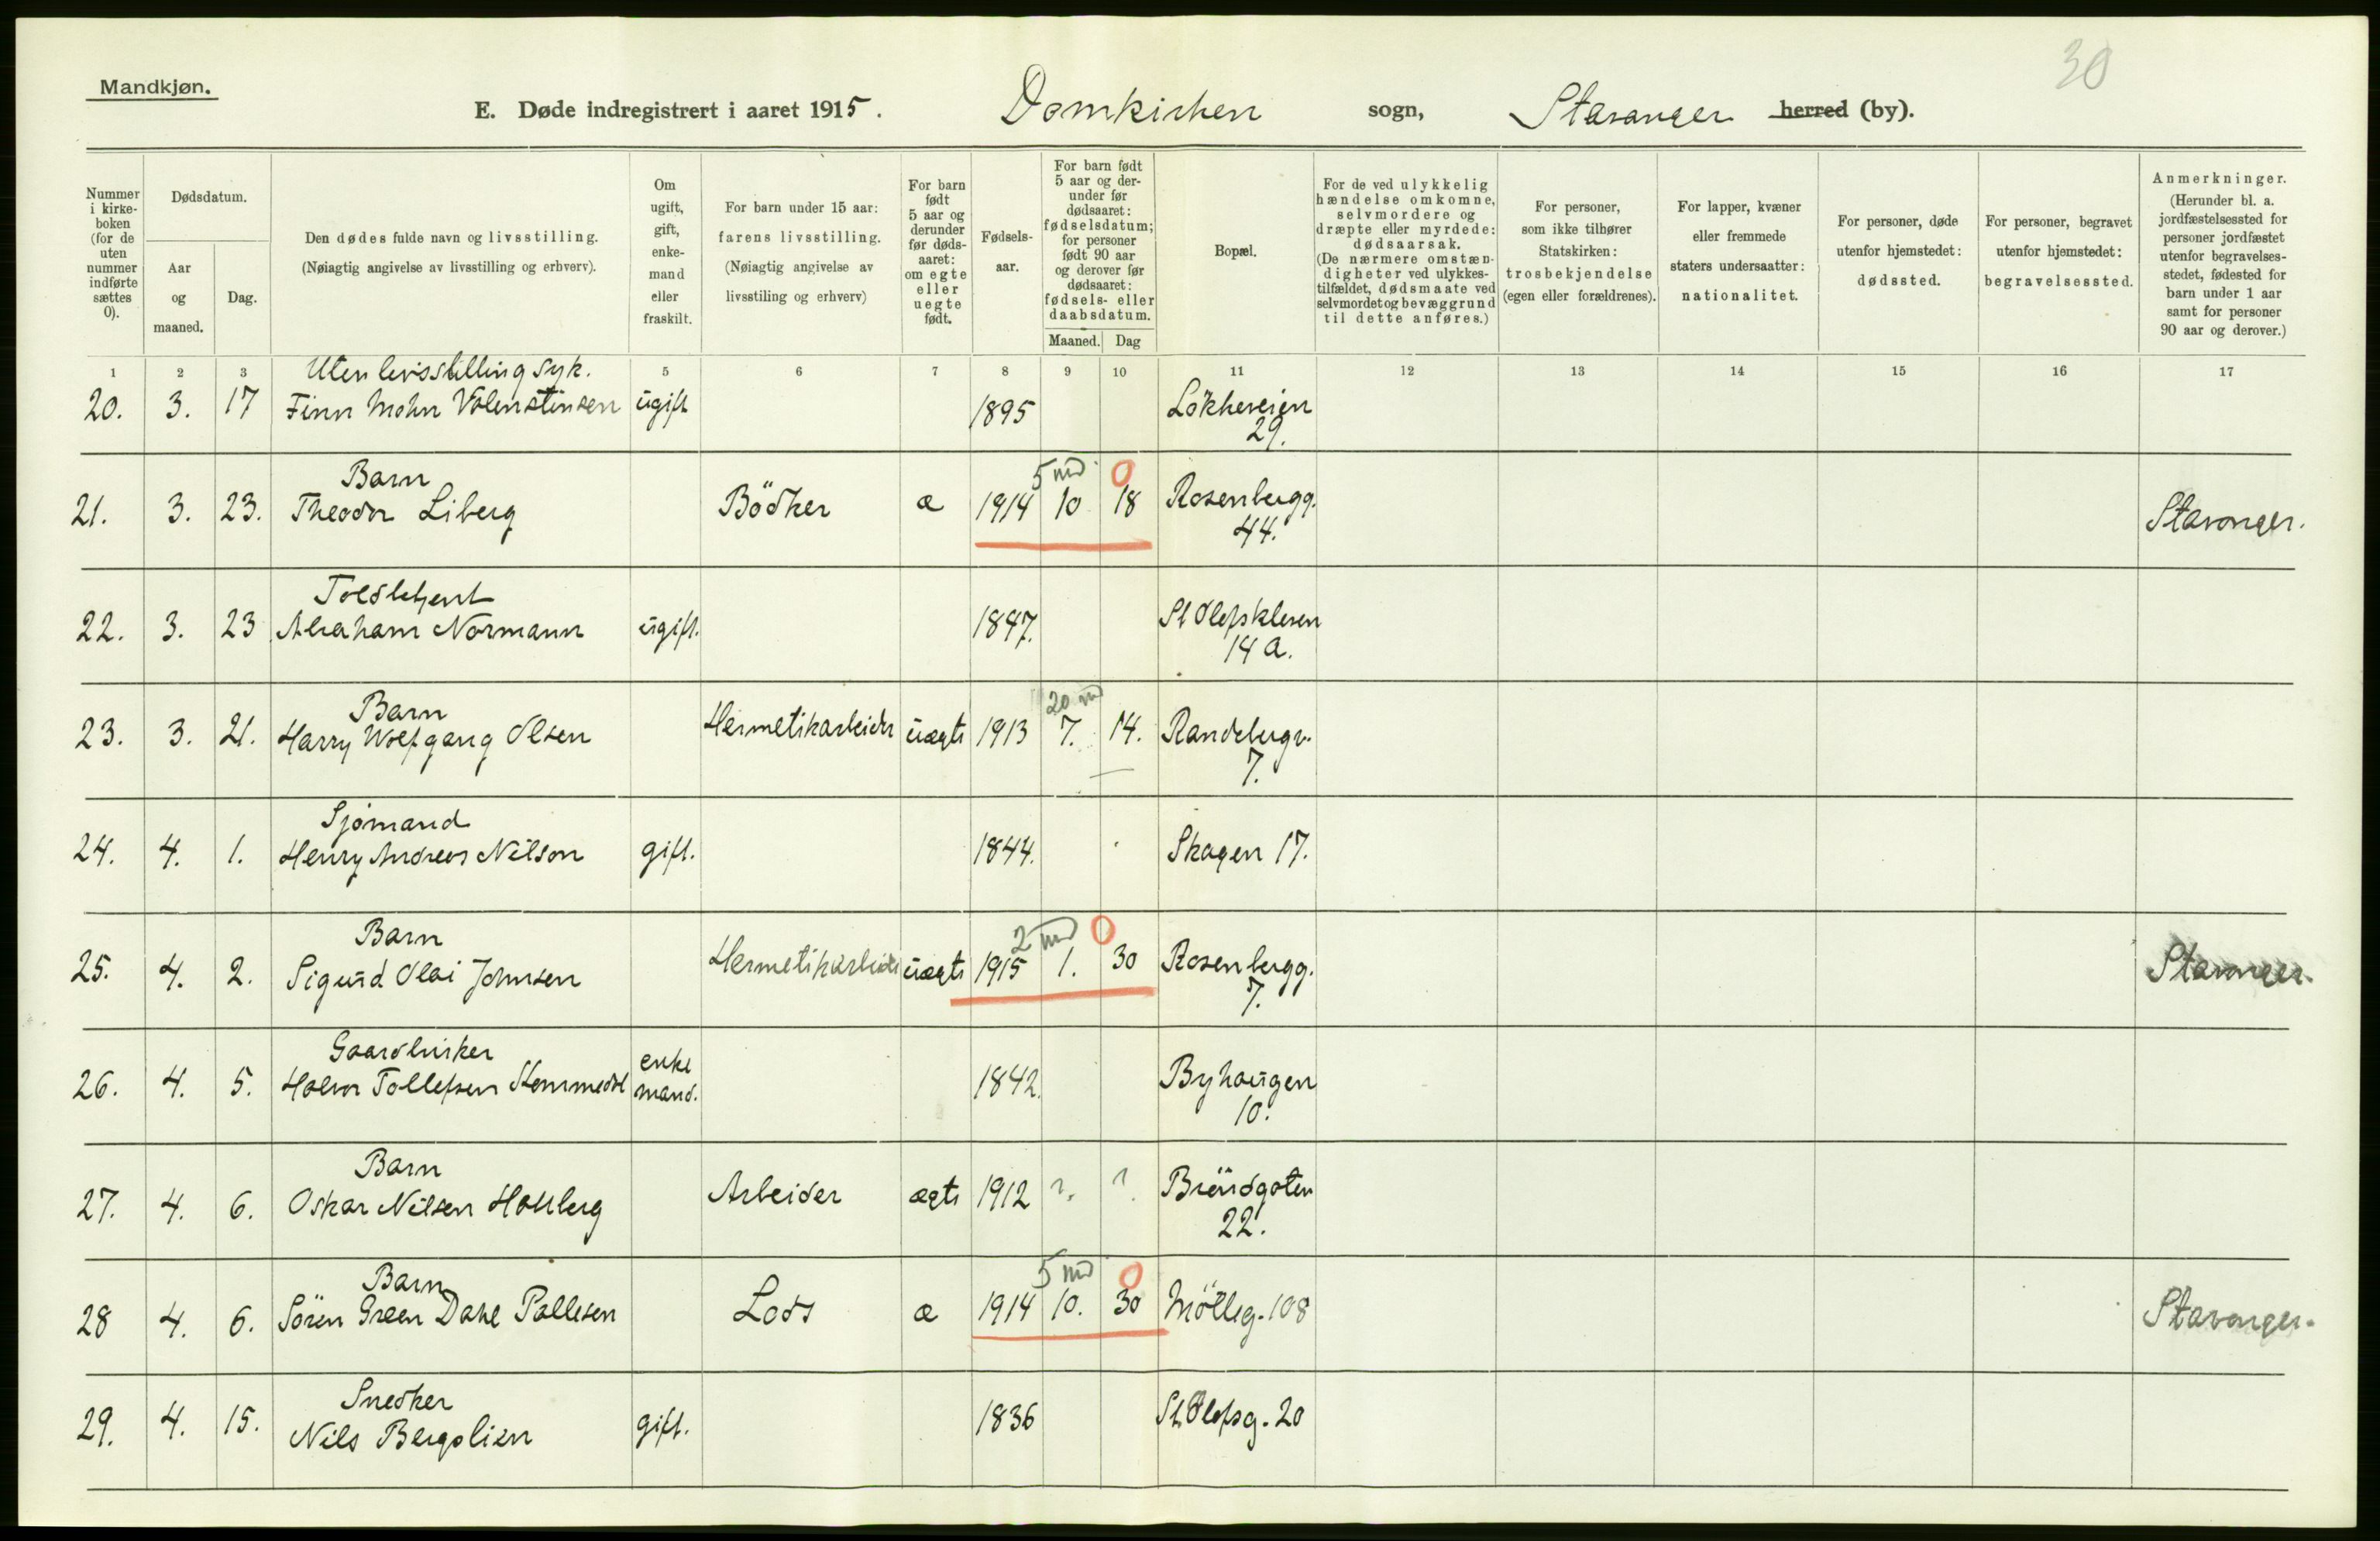 30
Mandkjøn.
E. Døde indregistrert i aaret 1915. Domkirken sogn, Stavanger herred (by).
Nummer i kirke-boken (for de uten nummer indførte sættes 0).
Dødsdatum.
Aar og maaned.
Dag.
Den dødes fulde navn og livsstilling.
(Nøiagtig angivelse av livsstilling og erhverv).
Om ugift, gift, enke-mand eller fraskilt.
For barn under 15 aar: farens livsstilling.
(Nøiagtig angivelse av livsstiling og erhverv)
For barn født 5 aar og derunder før døds-aaret: om egte eller uegte født.
Fødsels-aar.
For barn født 5 aar og der-under før dødsaaret: fødselsdatum; for personer født 90 aar og derover før dødsaaret: fødsels- eller daabsdatum.
Maaned. Dag
Bopæl.
For de ved ulykkelig hændelse omkomne, selvmordere og dræpte eller myrdede: dødsaarsak.
(De nærmere omstæn-digheter ved ulykkes-tilfældet, dødsmaate ved selvmordet og bevæggrund til dette anføres.)
For personer, som ikke tilhører Statskirken: trosbekjendelse (egen eller forældrenes).
For lapper, kvæner eller fremmede staters undersaatter: nationalitet.
For personer, døde utenfor hjemstedet: dødssted.
For personer, begravet utenfor hjemstedet: begravelsessted.
Anmerkninger.
(Herunder bl. a. jordfæstelsessted for personer jordfæstet utenfor begravelses-stedet, fødested for barn under 1 aar samt for personer 90 aar og derover.)
1 2 3 5 6 7 8 9 10 11 12 13 14 15 16 17
Uten livsstilling syk.
20. 3. 17 Finn Mohn Valentinsen ugift 1895 Lökkeveien
29.
Barn 5 md 0
21. 3. 23. Theodor Liberg Bödker æ 1914 10 18 Rosenbergg. Stavanger.
44.
Toldbetjent
22. 3. 23 Abraham Normann ugift. 1847. St Olefskleven
14 a.
Barn 20 md
23. 3. 21. Harry Wolfgang Olsen Hermetikarbeider uægte 1913 7. 14. Randebergv.
7.
Sjömand
24. 4. 1. Henry Andreas Nilson gift. 1844. Skagen 17.
Barn 2 md 0
25. 4. 2. Sigurd Olai Johnsen Hermetikarbeider uægte 1915 1. 30 Rosenbergg. Stavanger.
7.
Gaardbruker
26. 4. 5. Halvor Tollefsen enke mand. 1842. Byhaugen
10.
Barn
27. 4. 6. Oskar Nilsen Hallberg Arbeider ægte 1912 ?. ?. Bröndgaten
22.
Barn 5 md 0
28 4. 6. Sören Green Dahl Pallesen Lods æ 1914 10. 30 Mölleg. 108 Stavanger.
Snedker
29. 4. 15. Nils Bergslien gift. 1836 St. Olefsg. 20